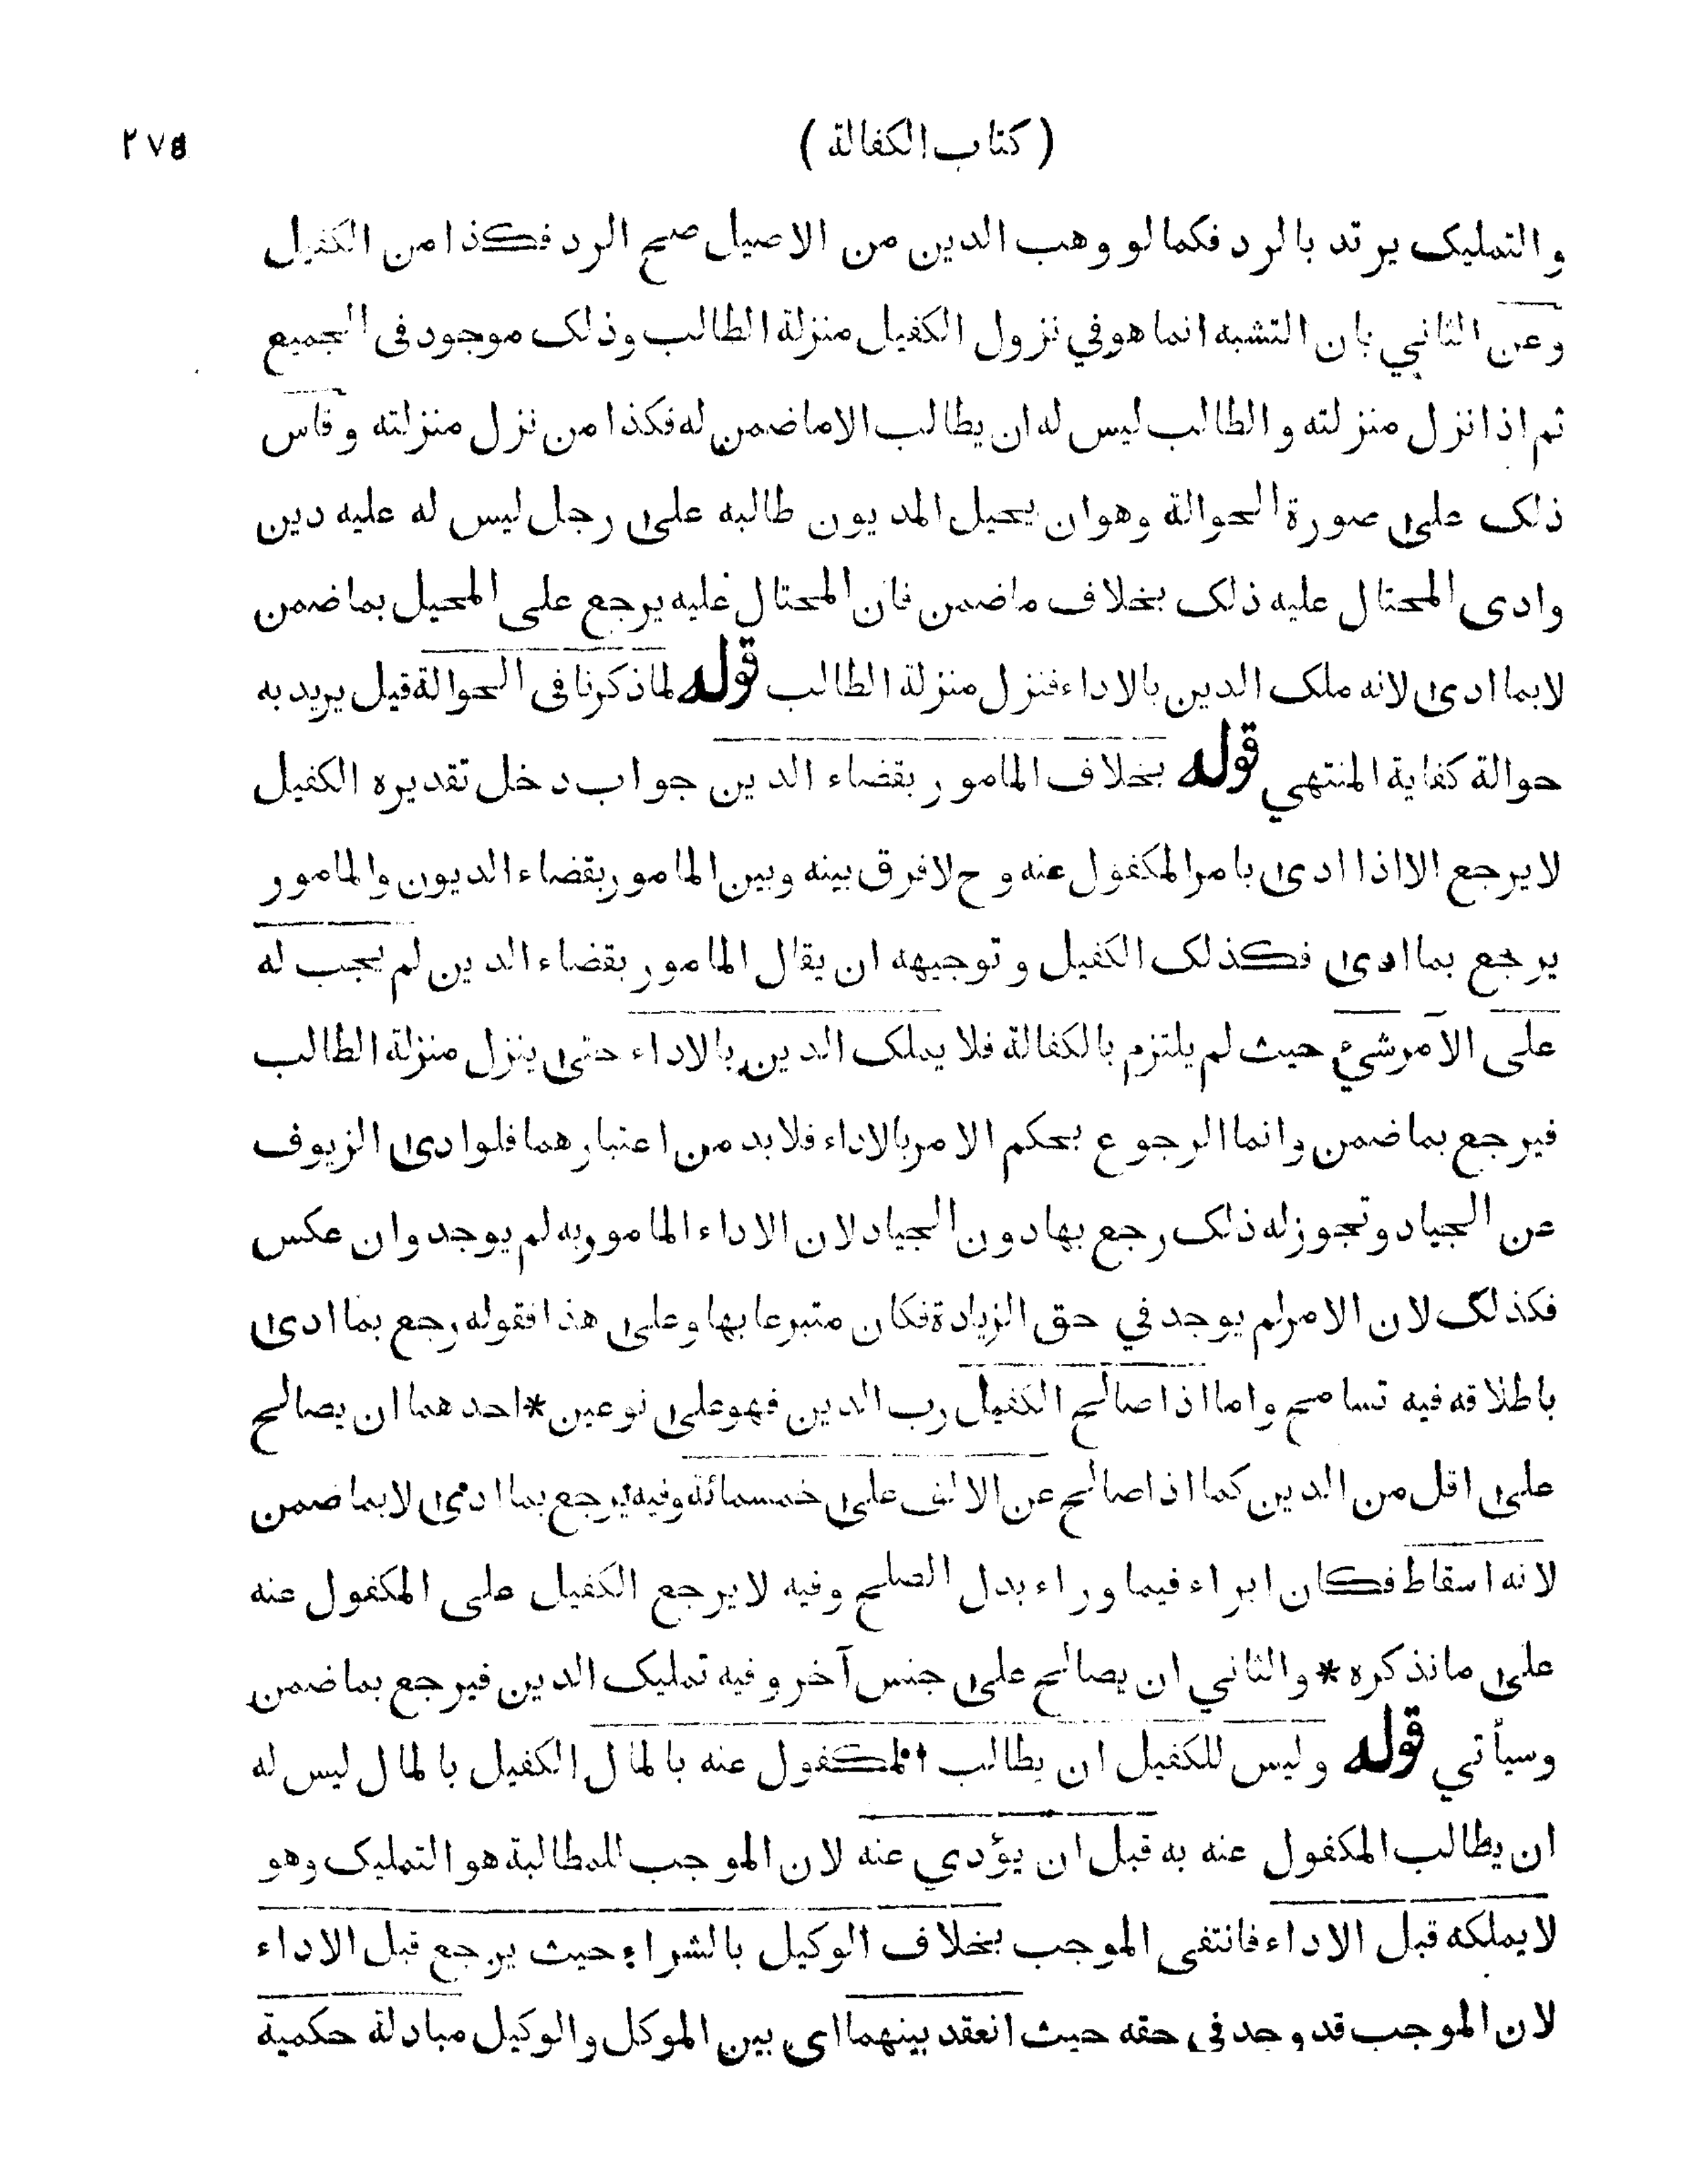 ( كتاب الكفالة )
والتمليك يرتد بالرد فكما لو وهب الدين من الاصيل صح الرد فكذا من الكفيل
وعن الثاني بان التشبه انما هو في نزول الكفيل منزلة الطالب وذلك موجود فى الجميع
ثم اذا نزل منزلته والطالب ليس له ان يطالب الا ما ضمن له فكذا من نزل منزلته وقاس
ذلك على صورة الحوالة وهو ان يحيل المديون طالبه على رجل ليس له عليه دين
وادى المحتال عليه ذلك بخلاف ما ضمن فان المحتال عليه يرجع على المحيل بما ضمن
لا بما ادى لانه ملك الدين بالاداء فنزل منزلة الطالب قوله لما ذكرنا فى الحوالة قيل يريد به
حوالة كفاية المنتهي قوله بخلاف المامور بقضاء الدين جواب دخل تقديره الكفيل
لا يرجع الا اذا ادى بامر المكفول عنه وح لا فرق بينه وبين المامور بقضاء الديون والمامور
يرجع بما ادى فكذلك الكفيل وتوجيهه ان يقال المامور بقضاء الدين لم يجب له
على الآمر شيء حيث لم يلتزم بالكفالة فلا يملك الدين بالاداء حتى ينزل منزلة الطالب
فيرجع بما ضمن وانما الرجوع بحكم الامر بالاداء فلا بد من اعتبارهما فلو ادى الزيوف
عن الجياد وتجوز له ذلك رجع بها دون الجياد لان الاداء المامور به لم يوجد وان عكس
فكذلك لان الامر لم يوجد في حق الزيادة فكان متبرعا بها وعلى هذا فقوله رجع بما ادى
باطلاقه فيه تسامح واما اذا صالح الكفيل رب الدين فهو على نوعين * احدهما ان يصالح
على اقل من الدين كما اذا صالح عن الالف على خمسمائة وفيه يرجع بما ادى لا بما ضمن
لانه اسقاط فكان ابراء فيما وراء بدل الصلح وفيه لا يرجع الكفيل على المكفول عنه
على ما نذكره * والثاني ان يصالح على جنس آخر وفيه تمليك الدين فيرجع بما ضمن
وسيأتي قوله وليس للكفيل ان يطالب المكفول عنه بالمال الكفيل بالمال ليس له
ان يطالب المكفول عنه به قبل ان يؤدي عنه لان الموجب للمطالبة هو التمليك وهو
لا يملكه قبل الاداء فانتفى الموجب بخلاف الوكيل بالشراء حيث يرجع قبل الاداء
لان الموجب قد وجد فى حقه حيث انعقد بينهما اى بين الموكل والوكيل مبادلة حكمية